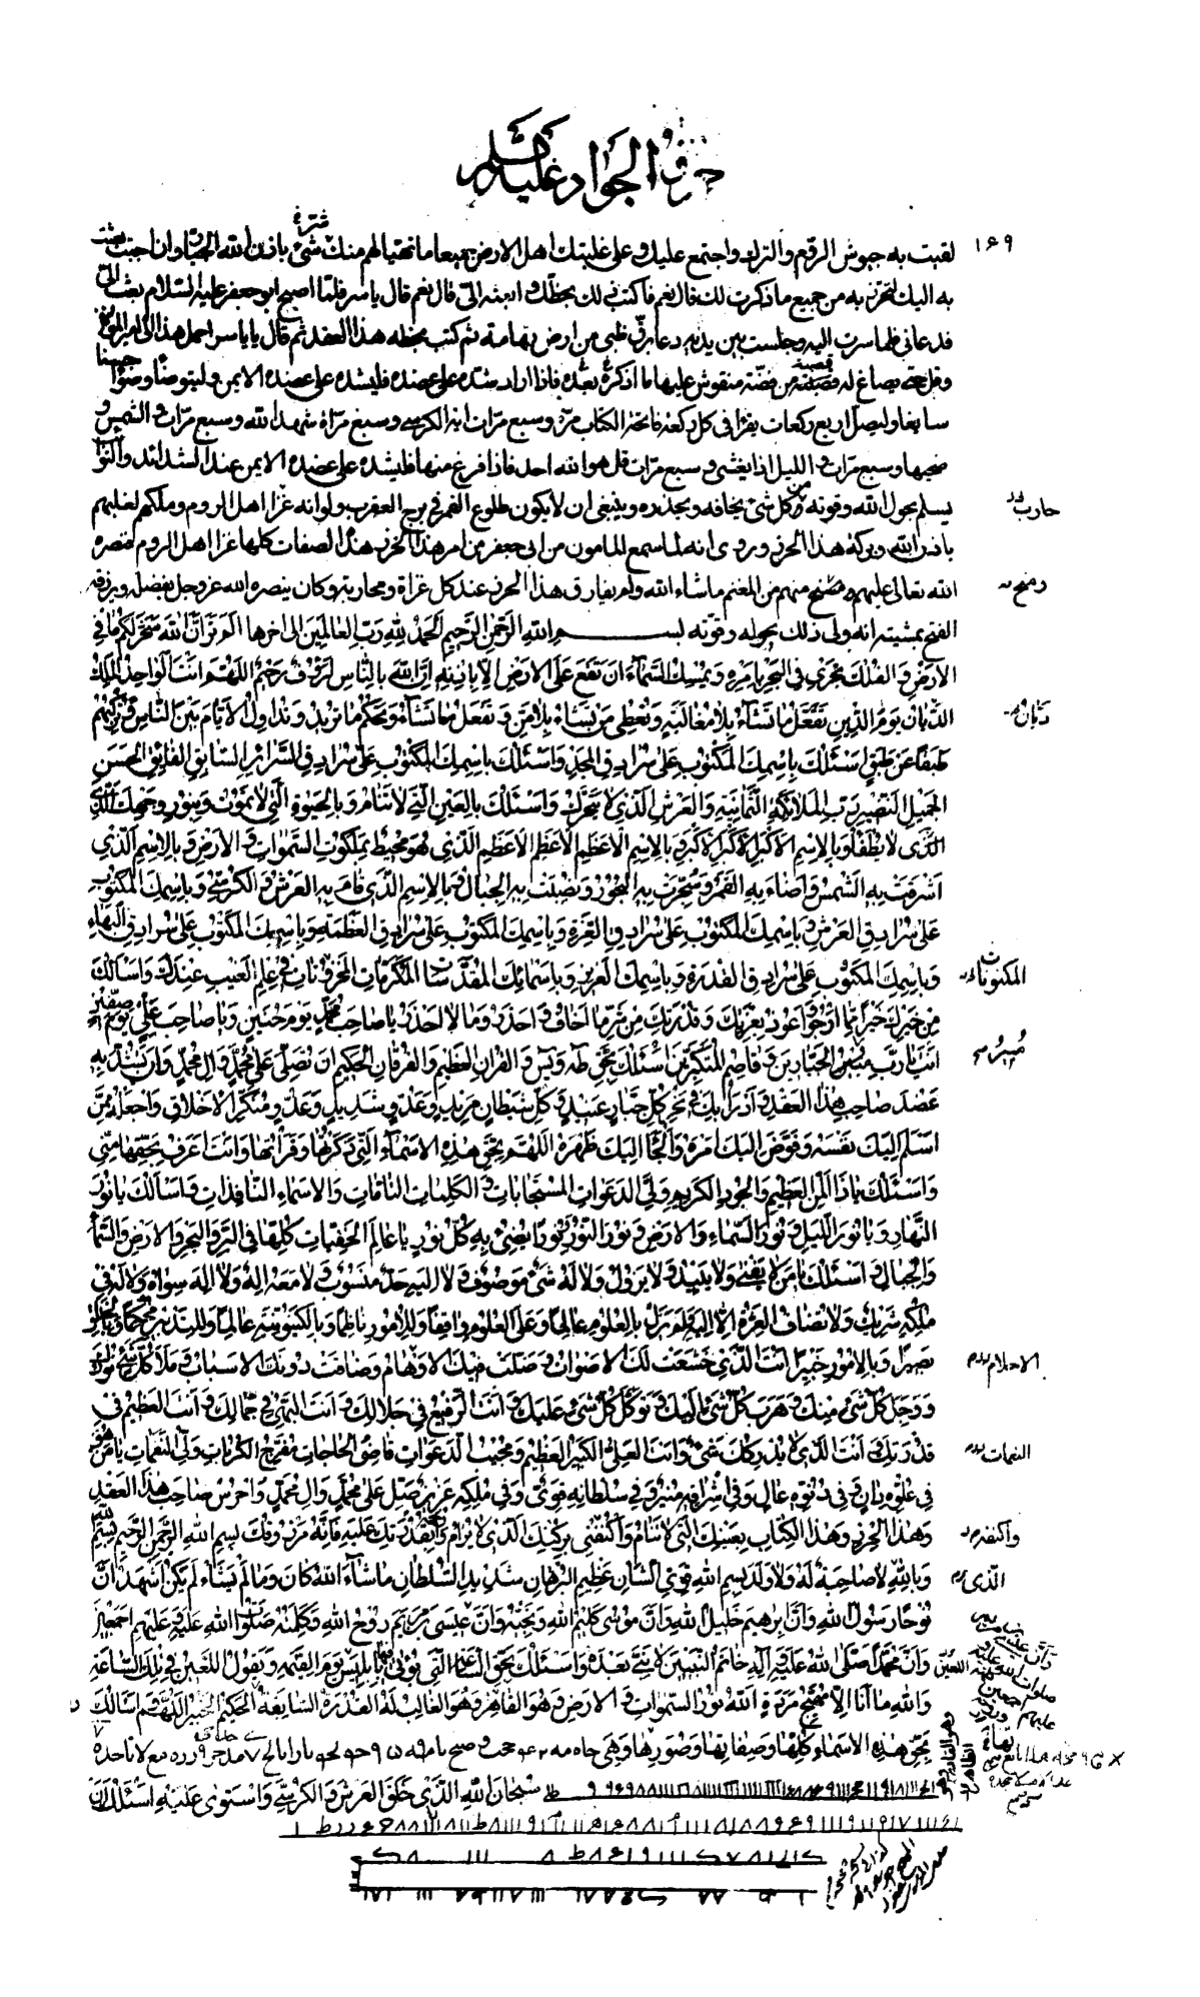 حرز الجواد علیه السلام
۱۶۹
لقیت به جیوش الروم والترك واجتمع علیك وعلی غلبتك اهل الارض جمیعا ما تهیأ لهم منك شیء باذن الله الجبار وان احببت بعثت
به الیك لتحترز به من جمیع ما ذكرت لك قال نعم فاكتب ذلك بخطك وابعثه الی قال نعم قال یاسر فلما اصبح ابوجعفر علیه السلام بعث الی
فدعانی فلما سرت الیه وجلست بین یدیه دعا برق ظبی من ارض تهامة ثم كتب بخطه هذا العقد ثم قال یا یاسر احمل هذا الی امیرالمؤمنین
وقل حتی یصاغ له قصبة من فضة منقوش علیها ما اذكره بعده فاذا اراد شده علی عضده فلیشده علی عضده الایمن ولیتوضأ وضوءا حسنا
سابغا ولیصل اربع ركعات یقرأ فی كل ركعة فاتحة الكتاب مرة وسبع مرات ایة الكرسی وسبع مراة شهد الله وسبع مرات والشمس و
ضحیها وسبع مرات واللیل اذا یغشی وسبع مرات قل هو الله احد فاذا فرغ منها فلیشده علی عضده الایمن عند الشدائد والنوائب
یسلم بحول الله وقوته من كل شیء یخافه ویحذره وینبغی ان لا یكون طلوع القمر فی برج العقرب ولو انه غزا اهل الروم وملكهم لغلبهم
باذن الله وبركة هذا الحرز وروی انه لما سمع المامون من ابی جعفر من امر هذا الحرز هذه الصفات كلها غزا اهل الروم فنصره
الله تعالی علیهم ومنح منهم من المغنم ما شاء الله ولم یفارق هذا الحرز عند كل غزاة ومحاربة وكان ینصره الله عز وجل بفضله ویرزقه
الفتح بمشیته انه ولی ذلك بحوله وقوته بسم الله الرحمن الرحیم الحمد لله رب العالمین الی اخرها الم تر ان الله سخر لكم ما فی
الارض والفلك تجری فی البحر بامره ویمسك السماء ان تقع علی الارض الا باذنه ان الله بالناس لرؤف رحیم اللهم انت الواحد الملك
الدیان یوم الدین تفعل ما تشاء بلا مغالبة وتعطی من تشاء بلا من وتفعل ما تشاء وتحكم ما ترید وتداول الایام بین الناس وتركبهم
طبقا عن طبق اسئلك باسمك المكتوب علی سرادق المجد واسئلك باسمك المكتوب علی سرادق السرائر السابق الفائق الحسن
الجمیل النضیر رب الملائكة الثمانیة والعرش الذی لا یتحرك واسئلك بالعین التی لا تنام وبالحیوة التی لا تموت وبنور وجهك
الذی لا یطفأ وبالاسم الاكبر الاكبر الاكبر وبالاسم الاعظم الاعظم الاعظم الذی هو محیط بملكوت السموات والارض وبالاسم الذی
اشرقت به الشمس واضاء به القمر وسجرت به البحور ونصبت به الجبال وبالاسم الذی قام به العرش والكرسی وباسمك المكتوب
علی سرادق العرش وباسمك المكتوب علی سرادق العزة وباسمك المكتوب علی سرادق العظمة وباسمك المكتوب علی سرادق البهاء
وباسمك المكتوب علی سرادق القدرة وباسمك العزیز وباسمائك المقدسات المكرمات المخزونات فی علم الغیب عندك واسالك
من خیرك خیرا مما ارجو واعوذ بعزتك وقدرتك من شر ما اخاف واحذر وما لا احذر یا صاحب محمد یوم حنین ویا صاحب علی یوم صفین
انت یا رب مبیر الجبارین وقاصم المتكبرین اسئلك بحق طه ویس والقران العظیم والفرقان الحكیم ان تصلی علی محمد وال محمد وان تشد به
عضد صاحب هذا العقد وادرأ بك فی نحر كل جبار عنید وكل شیطان مرید وعدو شدید وعدو منكر الاخلاق واجعله ممن
اسلم الیك نفسه وفوض الیك امره والجأ الیك ظهره اللهم بحق هذه الاسماء التی ذكرتها وقرأتها وانت اعرف بحقها منی
واسئلك یا ذا المن العظیم والجود الكریم ولی الدعوات المستجابات والكلمات التامات والاسماء النافذات واسالك یا نور
النهار ویا نور اللیل ونور السماء والارض ونور النور ونورا یضیء به كل نور یا عالم الخفیات كلها فی البر والبحر والارض والسماء
والجبال واسئلك یا من لا یفنی ولا یبید ولا یزول ولا له شیء موصوف ولا الیه حد منسوب ولا معه اله ولا اله سواه ولا له فی
ملكه شریك ولا تضاف العزة الا الیه لم یزل بالعلوم عالما وعلی العلوم واقفا وللامور ناظما وبالكینونیة عالما وللتدبیر محكما وبالخلق
بصیرا وبالامور خبیرا انت الذی خشعت لك الاصوات وضلت فیك الاوهام وضاقت دونك الاسباب وملأ كل شیء نورك
ووجل كل شیء منك وهرب كل شیء الیك وتوكل كل شیء علیك وانت الرفیع فی جلالك وانت البهی فی جمالك وانت العظیم فی
قدرتك وانت الذی لا یدركك شیء وانت العلی الكبیر العظیم ومجیب الدعوات قاضی الحاجات مفرج الكربات ولی النعمات یا من هو
فی علوه دان وفی دنوه عال وفی اشراقه منیر وفی سلطانه قوی وفی ملكه عزیز صل علی محمد وال محمد واحرس صاحب هذا العقد
وهذا الحرز وهذا الكتاب بعینك التی لا تنام واكنفنی بركنك الذی لا یرام وارحمه بقدرتك علیه فانه مرزوقك بسم الله الرحمن الرحیم بسم الله
وبالله لا صاحبة له ولا ولد بسم الله قوی الشان عظیم البرهان شدید السلطان ما شاء الله كان وما لم یشاء لم یكن اشهد ان
نوحا رسول الله وان ابرهیم خلیل الله وان موسی كلیم الله ونجیه وان عیسی بن مریم روح الله وكلمته صلوات الله علیه وعلیهم اجمعین
وان محمدا صلی الله علیه وآله خاتم النبیین لا نبی بعده واسئلك بحق الساعة التی یؤتی فیها بابلیس یوم القیمة ویقول اللعین فی تلك الساعة
والله ما انا الا مهیج مردة الله نور السموات والارض وهو القاهر وهو الغالب له القدرة السابغة الحكیم الخبیر اللهم اسالك
بحق هذه الاسماء كلها وصفاتها وصورها وهی
سبحان الله الذی خلق العرش والكرسی واستوی علیه اسئلك ان
حارب
ومنح
دیان
المكنونات
مبیر
الاحلام
النعمات
واكنفه
الذی